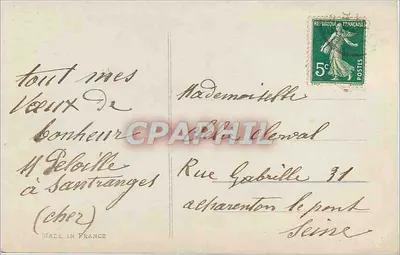 tout mes
vœux de
bonheure
M Deloille
à Santranges
(cher)
MADE IN FRANCE
REPUBLIQUE FRANÇAISE
5c
POSTES
CPARAMA
Mademoiselle
Clerval
Rue Gabrille 31
acharenton le pont
Seine